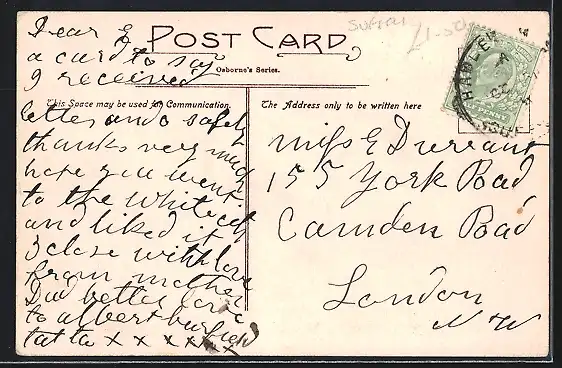 Dear E
a card to say
I received
letter and o safely
thanks very much
hope you went
to the white city
and liked it
I close with love
from mother
Dad better love
to albert
tat ta x x x x x x x
POST CARD
Osborne's Series.
This Space may be used for Communication.
The Address only to be written here
Suffolk
£1-50
HADLEIGH
Miss E Durrant
155 York Road
Camden Road
London
N W